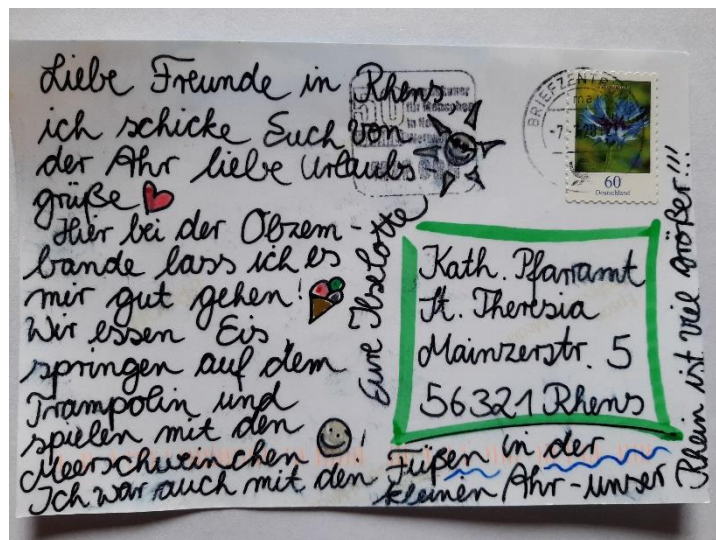 Liebe Freunde in Rhens
ich schicke Euch von
der Ahr liebe Urlaubs
grüße
Hier bei der Obzem-
bande lass ich es
mir gut gehen!
Wir essen Eis,
springen auf dem
Trampolin und
spielen mit den
Meerschweinchen!
Ich war auch mit den
Füßen in der
kleinen Ahr - unser
Rhein ist viel größer!!!
Eure Ilselotte
Kath. Pfarramt
St. Theresia
Mainzerstr. 5
56321 Rhens
BRIEFZENTR
60
Deutschland